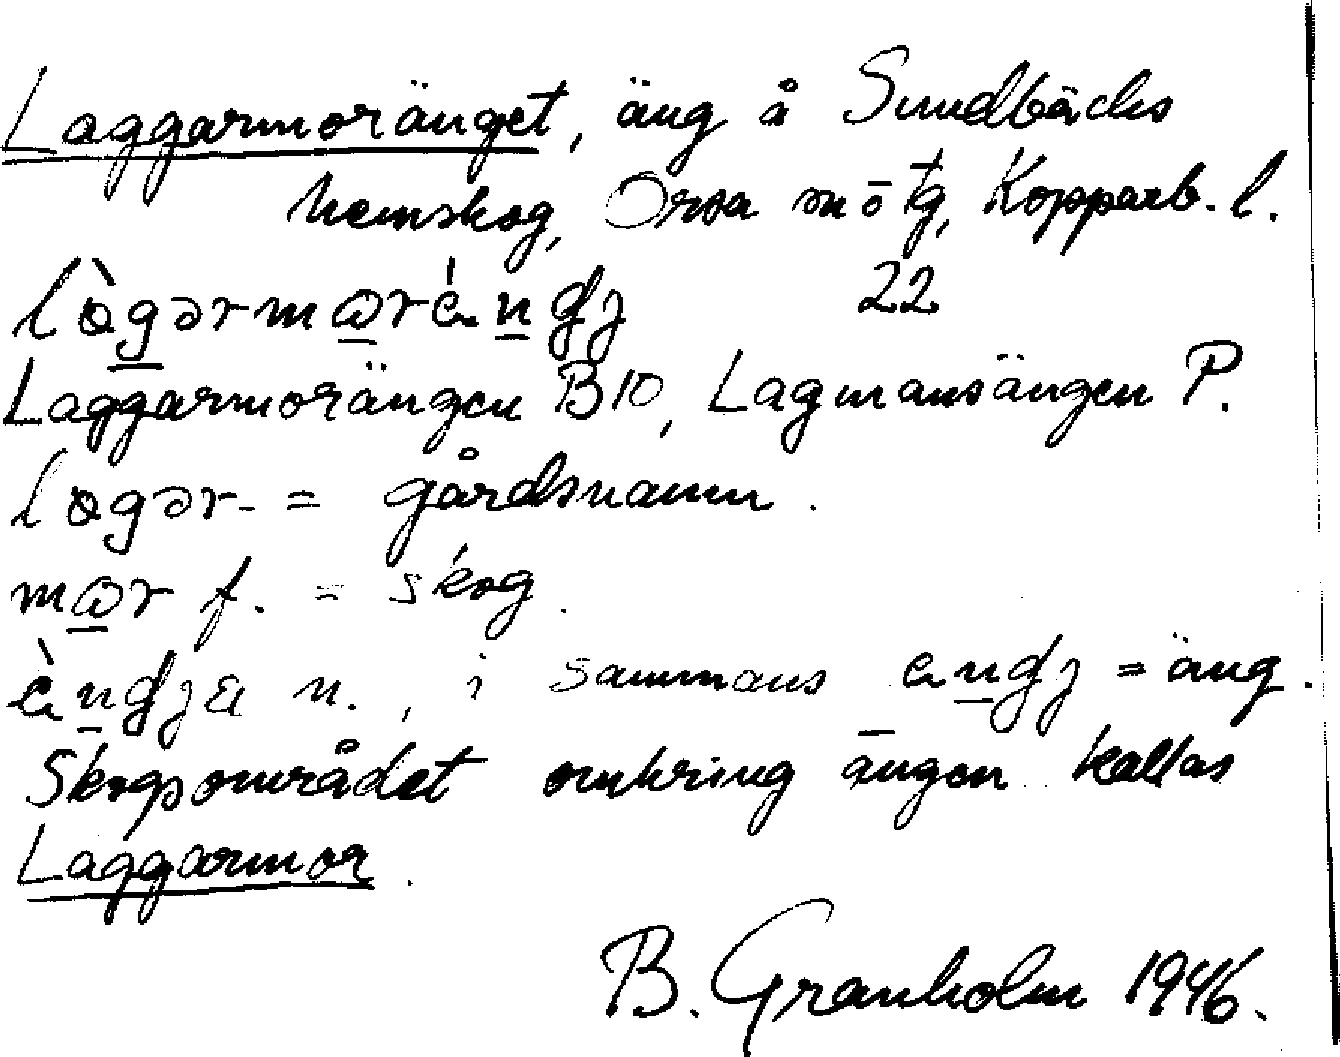 Laggarmoränget, äng å Sundbäcks
hemskog, Orsa sn o tg, Kopparb. l.
22
Laggarmorängen B10, Lagmansängen P.
= gårdsnamn.
f. = skog.
n., i sammans = äng.
Skogsområdet omkring ängen kallas
Laggarmor.
B. Granholm 1946.